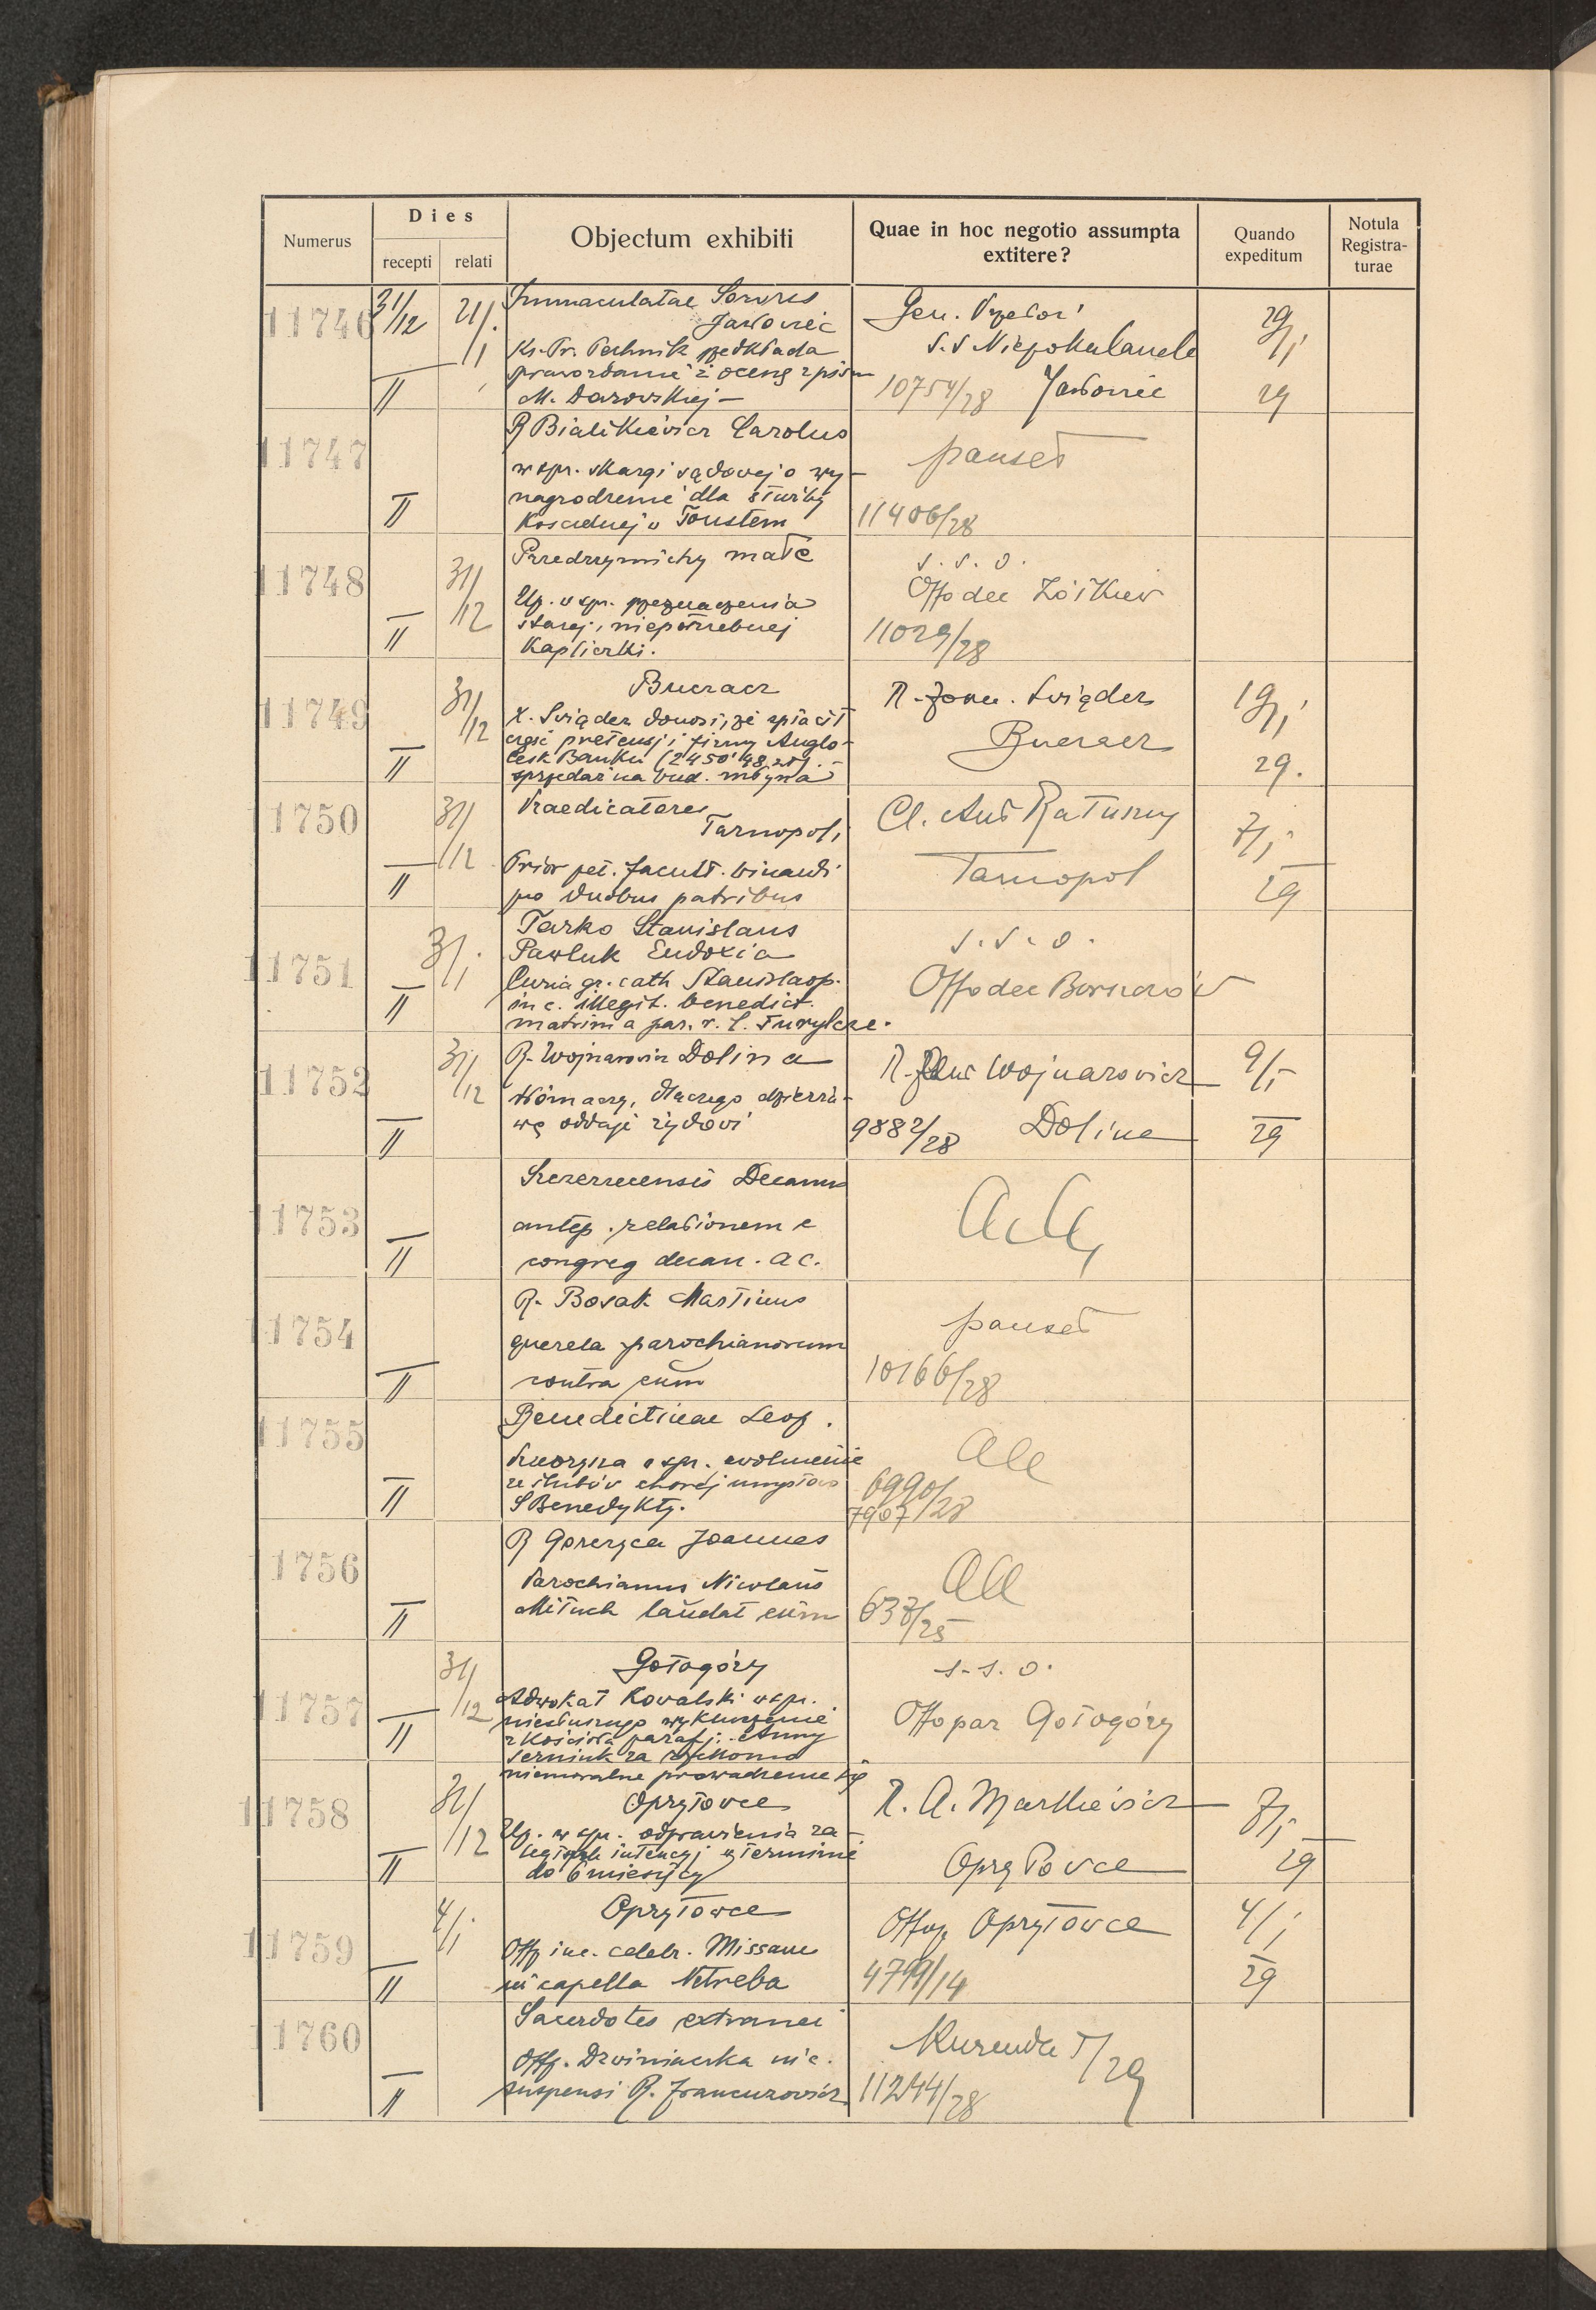 Numerus
Dies
recepti relati
Objectum exhibiti
Quae in hoc negotio assumpta
extitere?
Quando
expeditum
Notula
Registra-
turae
11746 31/12 21/1
Immaculatae Sorores
Jazłowiec
Ks. Dr. Pechnik przedkłada
sprawozdanie i ocenę z pism
M. Darowskiej —
II
Gen. Przełoż
S.S Niepokalanek
10754/28 Jazłowiec
29/1
29
11747
R Bialikiewicz Carolus
w spr. skargi sądowej o wy-
nagrodzenie dla służby
Kościelnej w Toustem
II
pauset
11406/28
11748 31/12
Przedrzymichy małe
Up. w spr. przeznaczenia
starej, niepotrzebnej
Kapliczki.
II
s. s. o.
Offo dec Żółkiew
11029/28
11749 31/12
Buczacz
X. Świąder donosi, że spłacił
część pretensji firmy Anglo-
Cesk Banku (2450'48 zł). -
sprzedaż na bud. młyna
II
R. Świąder
Buczacz
19/1
29.
11750 31/12
Praedicatores
Tarnopoli
Prior pet. facult. binandi
pro duobus patribus
II
Cl. Ratuszny
Tarnopol
7/1
29
11751 3/1
Tarko Stanislaus
Pawluk Eudoxia
Curia gr. cath Stanislaop.
in c. illegit. benedict.
matrim a par. r. l. Turylcze.
II
s. s. o.
Offo dec Borszczów
11752 31/12
R. Wojnarowicz Dolina
tłómaczy, dlaczego dzierża-
wę oddaje żydowi
II
R. Wojnarowicz
9882/28 Dolina
9/1
29
11753
Szczerzecensis Decanus
antep. relationem e
congreg decan. a c.
II
11754
R. Bosak Martinus
querela parochianorum
contra eum
II
pauset
10166/28
11755
Benedictinae Leop.
w spr. uwolnienie
ze ślubów chorej umysłowo
S Benedykty.
II
6990/28
7907/28
11756
R Goreczca Joannes
Parochianus Nicolaus
Mituch laudat eum
II
637/25
11757 31/12
Gołogóry
Adwokat Kowalski w spr.
niesłusznego wykluczenie
z Kościoła parafj. Anny
Serniuk za rzekomo
niemoralne prowadzenie się
II
s. s. o.
Offo par Gołogóry
11758 31/12
Opryłowce
Up. w spr. odprawienia za-
ległych intencyj w terminie
do 6 miesięcy
II
R. A. Markiewicz
Opryłowce
7/1
29
11759 4/1
Opryłowce
Offp in c. celebr. Missam
in capella Netreba
II
Offop Opryłowce
4744/14
4/1
29
11760
Sacerdotes extranei
Offp. Dzwiniaczka in c.
suspensi R. Franczuzowicz
II
Kurenda I/29
11244/28